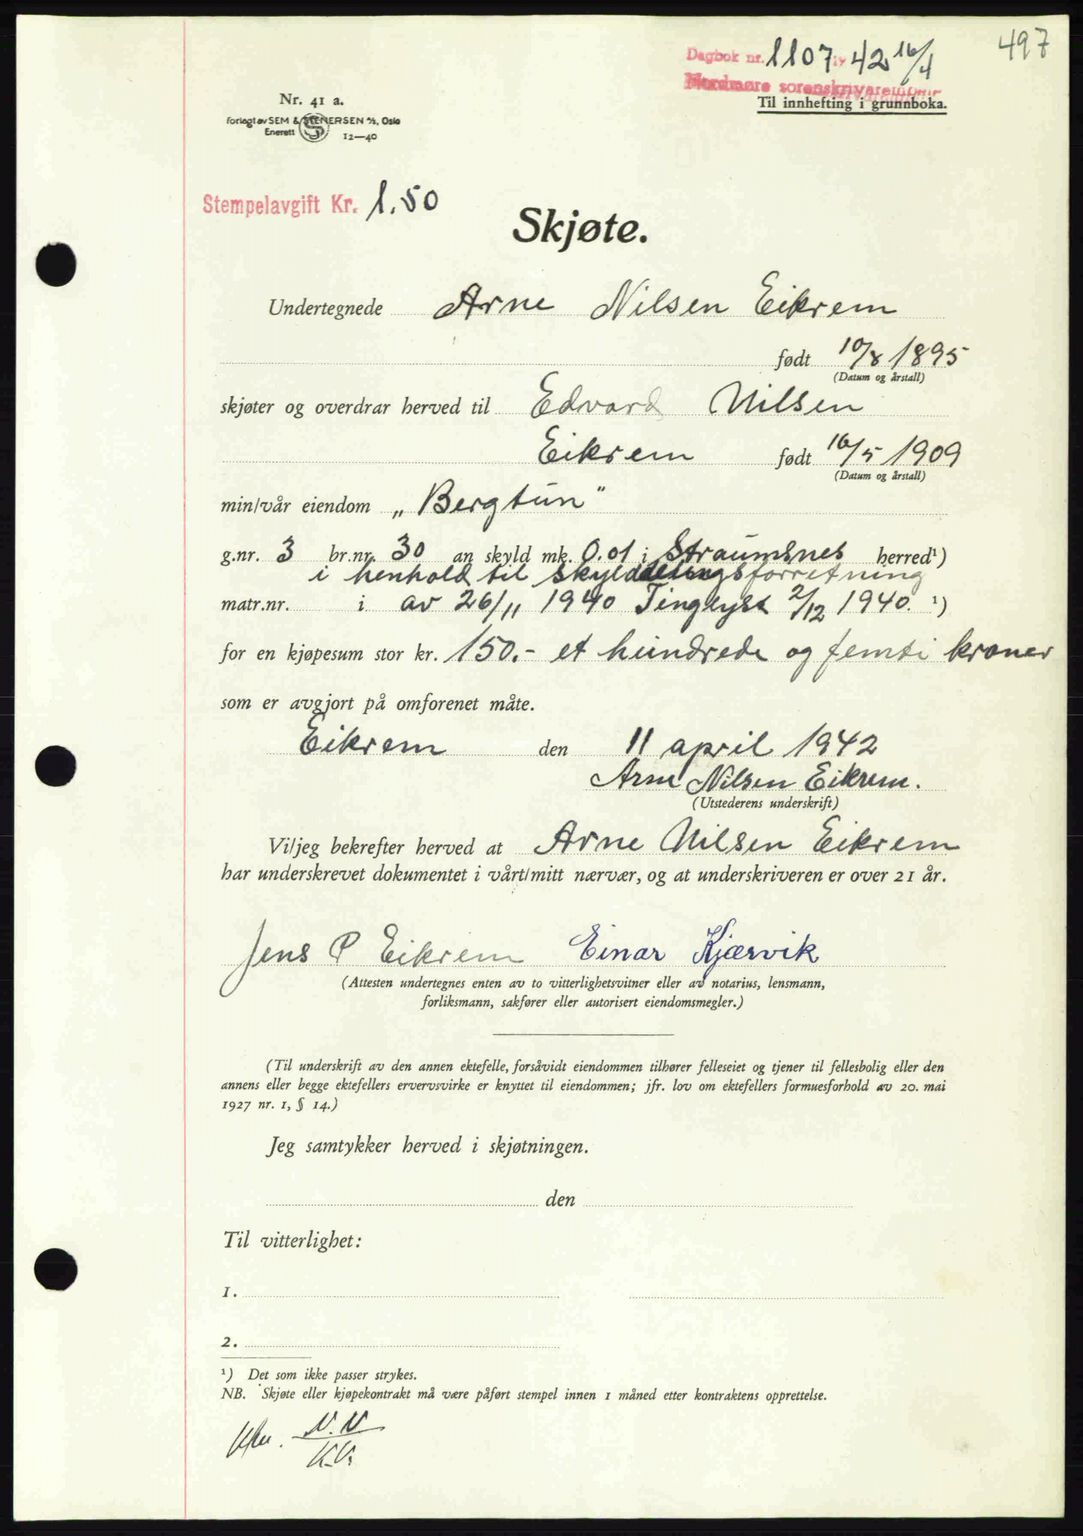 497
Dagbok nr. 1107 19 42 16/4
Nordmøre sorenskriverembete
Til innhefting i grunnboka.
Nr. 41 a.
Forlagt av SEM & STENERSEN A/S, Oslo
Enerett 12—40
Stempelavgift Kr. 1.50
Skjøte.
Undertegnede Arne Nilsen Eikrem
født 10/8 1895
(Datum og årstall)
skjøter og overdrar herved til Edvard Nilsen
Eikrem født 16/5 1909
(Datum og årstall)
min/vår eiendom „Bergtun"
g.nr. 3 br.nr. 30 an skyld mk. 0.01 i Straumsnes herred¹)
i henhold til skylddelingsforretning
matr.nr. i av 26/11 1940 Tinglyst 2/12 1940. ¹)
for en kjøpesum stor kr. 150.- et hundrede og femti kroner
som er avgjort på omforenet måte.
Eikrem den 11 april 1942
Arne Nilsen Eikrem.
(Utstederens underskrift)
Vi/jeg bekrefter herved at Arne Nilsen Eikrem
har underskrevet dokumentet i vårt/mitt nærvær, og at underskriveren er over 21 år.
Jens P Eikrem Einar Kjærvik
(Attesten undertegnes enten av to vitterlighetsvitner eller av notarius, lensmann,
forliksmann, sakfører eller autorisert eiendomsmegler.)
(Til underskrift av den annen ektefelle, forsåvidt eiendommen tilhører felleseiet og tjener til fellesbolig eller den
annens eller begge ektefellers ervervsvirke er knyttet til eiendommen; jfr. lov om ektefellers formuesforhold av 20. mai
1927 nr. 1, § 14.)
Jeg samtykker herved i skjøtningen.
den
Til vitterlighet:
1.
2.
¹) Det som ikke passer strykes.
NB. Skjøte eller kjøpekontrakt må være påført stempel innen 1 måned etter kontraktens opprettelse.
N.N